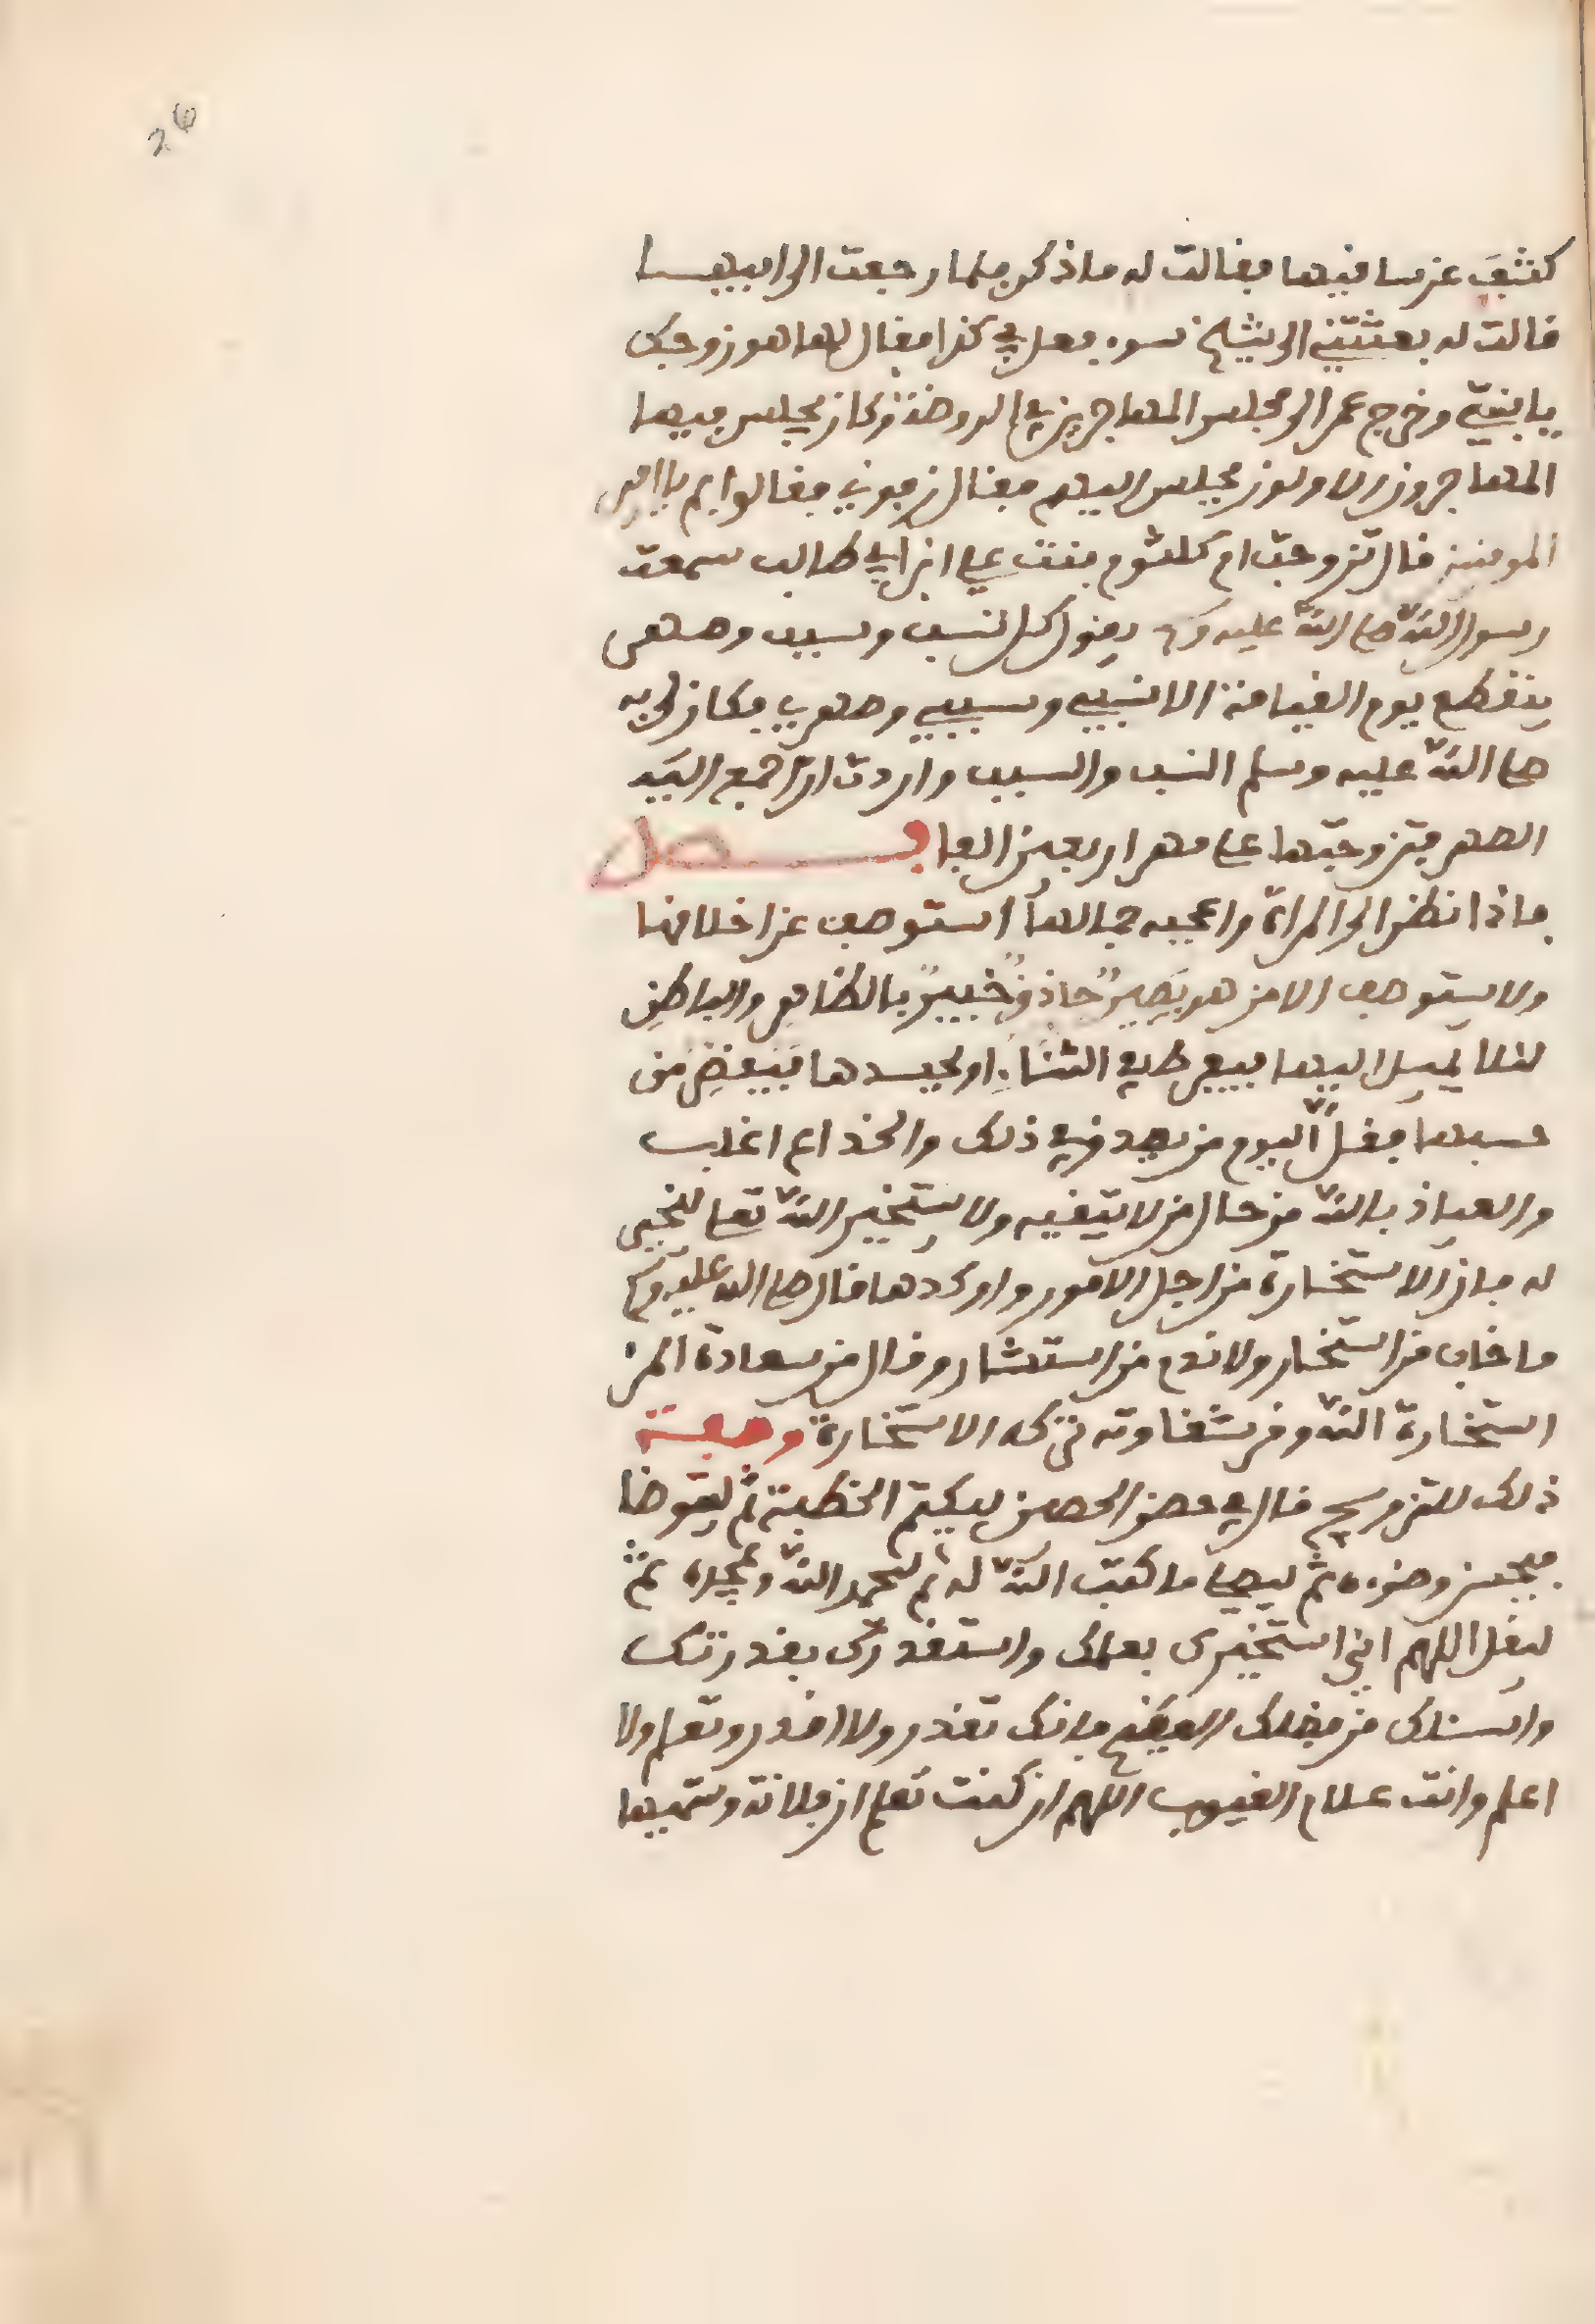 26
كشف عن ساقيها فقالت له ما ذكر فلما رجعت الى ابيها
قالت له بعثتني الى شيخ سوء فعل بي كذا فقال لها هو زوجك
يا بنتي وخرج عمر الى مجلس المهاجرين في الروضة وكان يجلس فيها
المهاجرون الاولون فجلس اليهم فقال زفوني فقالوا بم يا امير
المومنين قال تزوجت ام كلثوم بنت علي ابن ابي طالب سمعت
رسول الله صلى الله عليه وسلم يقول كل نسب وسبب وصهر
ينقطع يوم القيامة الا نسبي وسببي وصهري فكان لي به
صلى الله عليه وسلم النسب والسبب واردت ان اجمع اليه
الصهر فتزوجتها على مهر اربعين الفا فصل
فاذا نظر الى المراة واعجبه جمالها استوصف عن اخلاقها
ولا يستوصف الا من هو بصير حاذق خبير بالظاهر والباطن
لئلا يميل اليها فيفرط في الثناء او يحسدها فينقص من
حسبها فقل اليوم من يصدق في ذلك والخداع اغلب
والعياذ بالله من حال من لا يتقيه ولا يستخير الله تعلى ليخير
له فان الاستخارة من اجل الامور واوكدها قال صلى الله عليه وسلم
ما خاب من استخار ولا ندم من استشار وقال من سعادة المرء
استخارة الله ومن شقاوته تركه الاستخارة وصفة
ذلك للتزويج قال في حصن الحصين ليكتم الخطبة ثم ليتوضا
فيحسن وضوءه ثم ليصل ما كتب الله له ثم ليحمد الله ويمجده ثم
ليقل اللهم اني استخيرك بعلمك واستقدرك بقدرتك
واسئلك من فضلك العظيم فانك تقدر ولا اقدر وتعلم ولا
اعلم وانت علام الغيوب اللهم ان كنت تعلم ان فلانة وتسميها